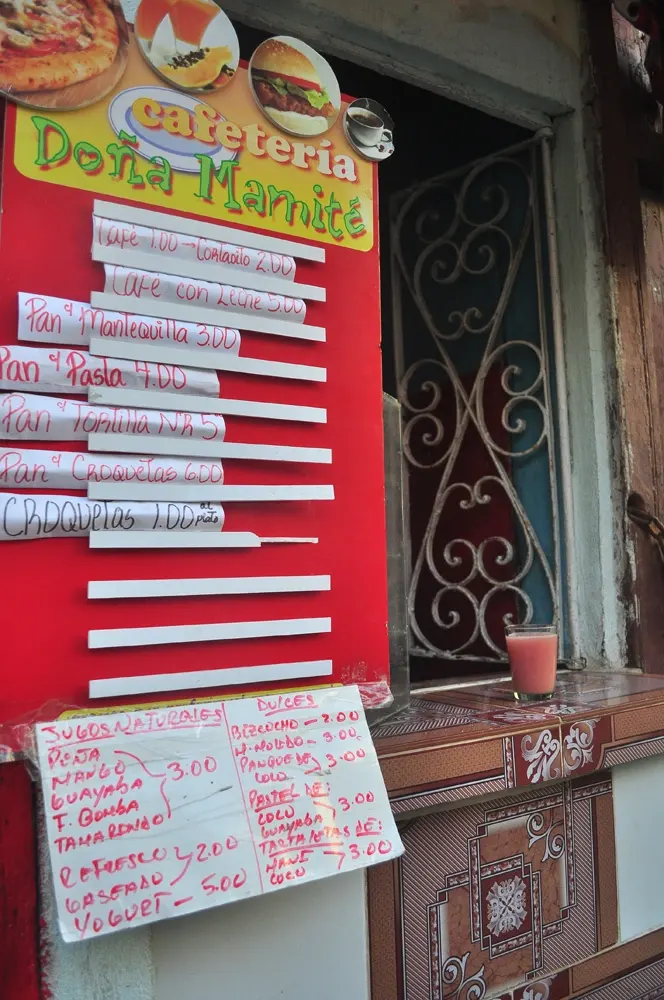 cafetería
Doña Mamité
Café 1.00 - Cortadito 2.00
Café con Leche 5.00
Pan c/ Mantequilla 3.00
Pan c/ Pasta 4.00
Pan c/ Tortilla N'R 5
Pan c/ Croquetas 6.00
CROQUETAS 1.00 al plato
JUGOS NATURALES
PIÑA
MANGO
GUAYABA 3.00
F. BOMBA
TAMARINDO
REFRESCO 2.00
GASEADO
YOGURT - 5.00
DULCES
BIZCOCHO - 2.00
H. MOLDO - 3.00
PANQUE DE 3.00
COCO
PASTEL DE
COCO 3.00
GUAYABA
TARTALETAS DE:
MANÍ 3.00
COCO